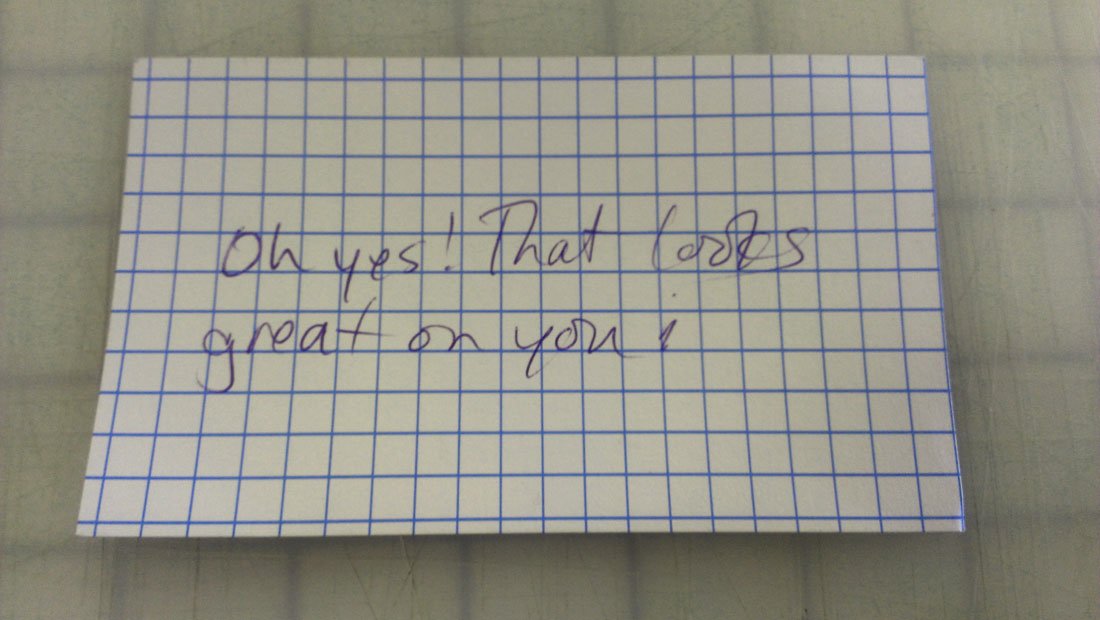 Oh yes! That looks
great on you ¡